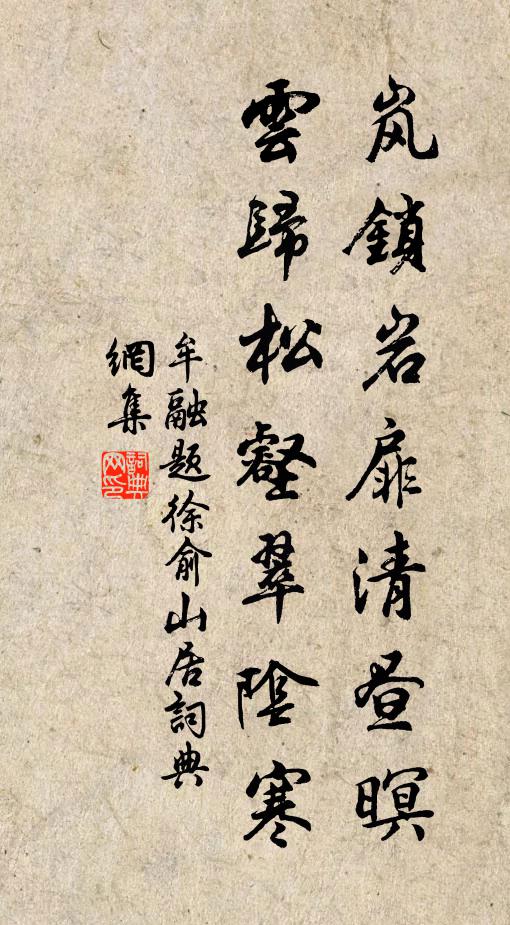 岚鎖岩扉清昼暝
雲歸松壑翠陰寒
牟融题徐俞山居詞典
網集
詞典
网印